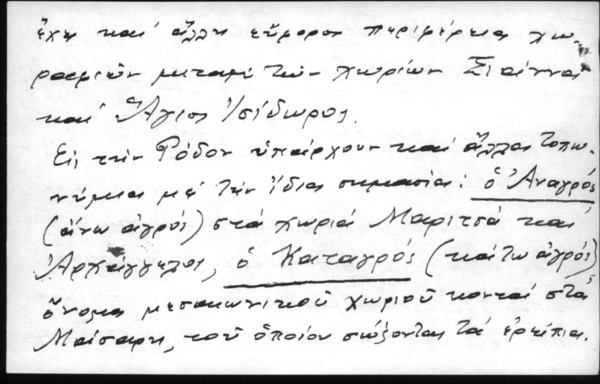 ἔχει καί ἄλλη εὔφορον περιφέρεια χω-
ραφιῶν μεταξύ τῶν χωριῶν Σιάννα
καί Ἅγιος Ἰσίδωρος.
Εἰς τήν Ρόδον ὑπάρχουν καί ἄλλα τοπω-
νύμια μέ τήν ἴδια σημασία: ὁ Ἀναγρός
(ἄνω ἀγρός) στά χωριά Μαριτσά καί
Ἀρχάγγελος, ὁ Καταγρός (κάτω ἀγρός)
ὄνομα μεσαιωνικοῦ χωριοῦ κοντά στά
Μάσαρη, τοῦ ὁποίου σώζονται τά ἐρείπια.